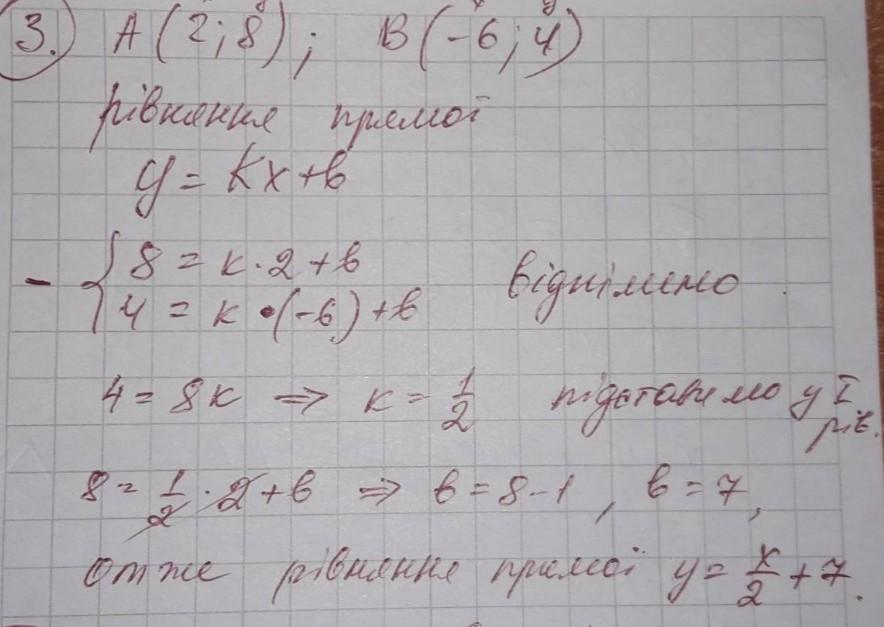 3. A(2;8); B(-6;4)
рівняння прямої
y = kx + b
- { 8 = k·2 + b
4 = k·(-6) + b віднімемо
4 = 8k ⇒ k = 1/2 підставимо у I рів.
8 = 1/2 · 2 + b ⇒ b = 8 - 1, b = 7,
Отже рівняння прямої y = x/2 + 7.